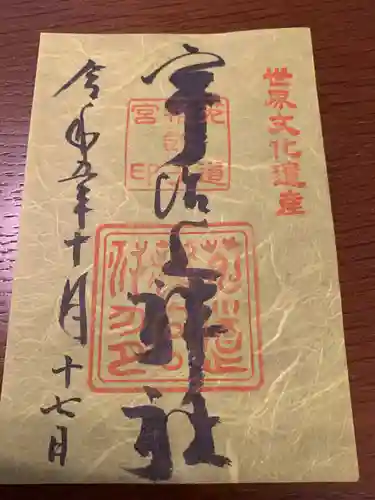 世界文化遺産
宇治上神社
令和五年十月十七日